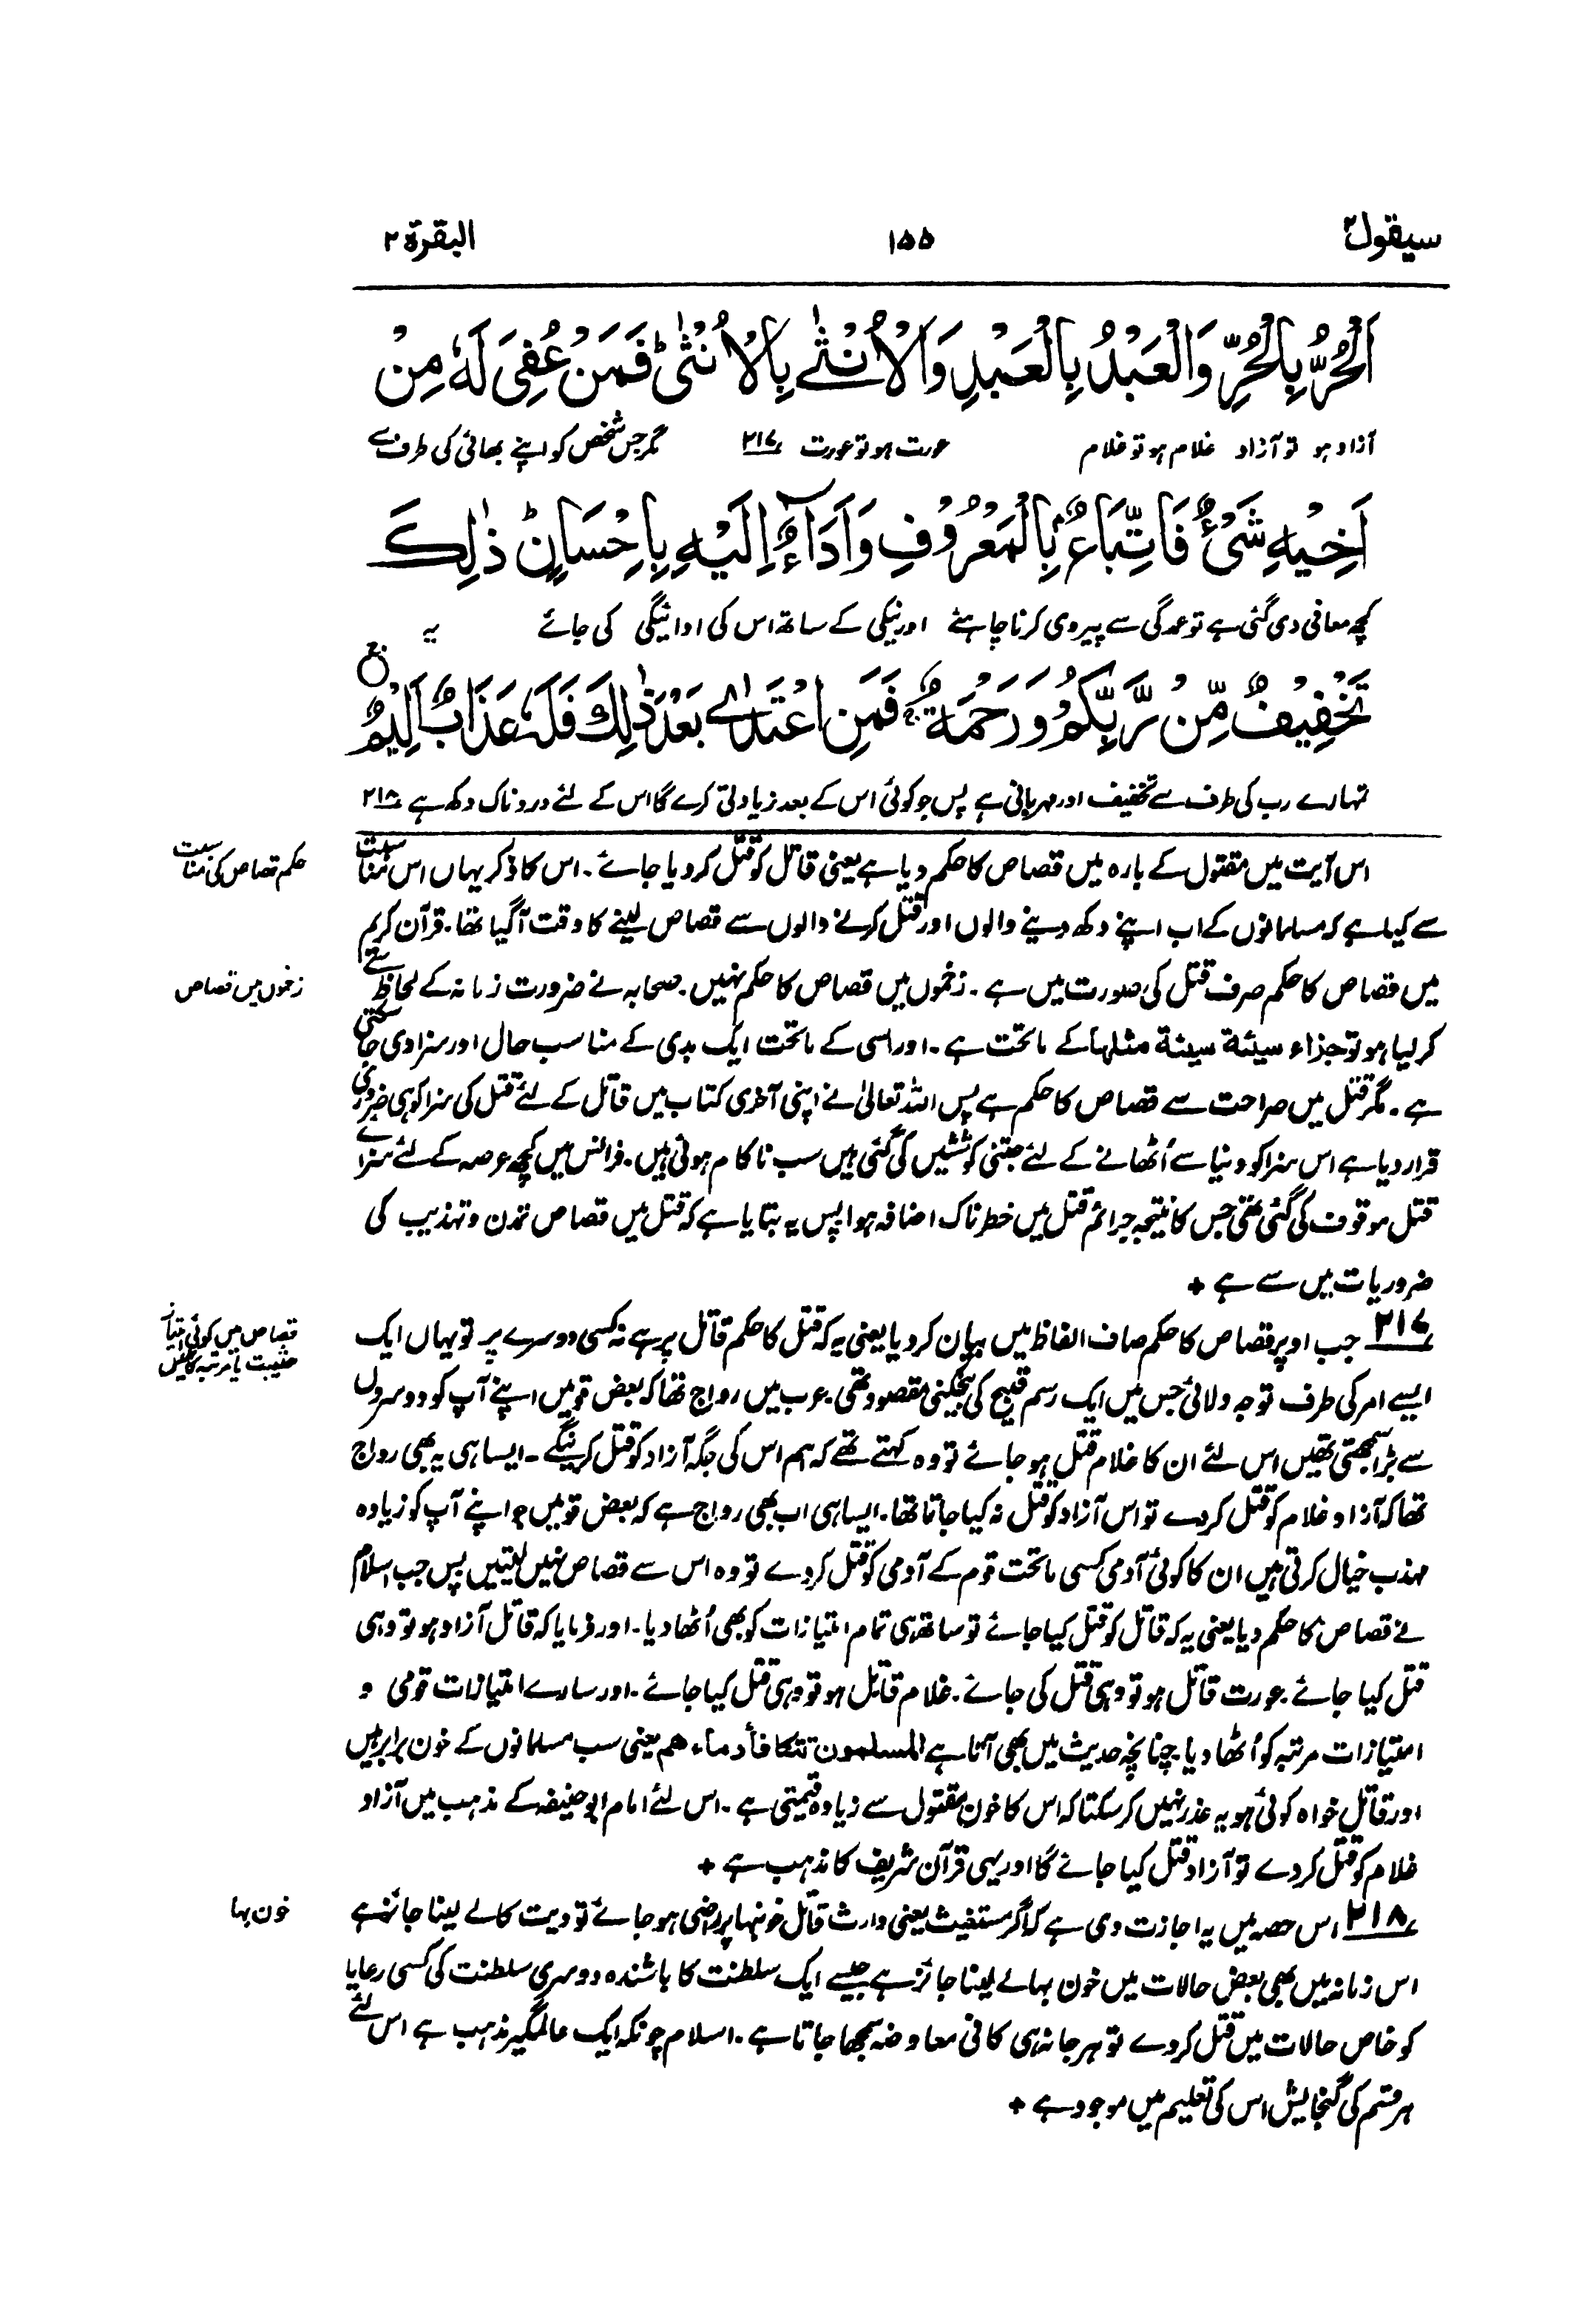 سیقول ۲
۱۵۵
البقرة ۲
اَلْحُرُّ بِالْحُرِّ وَالْعَبْدُ بِالْعَبْدِ وَالْاُنْثٰى بِالْاُنْثٰى ؕ فَمَنْ عُفِیَ لَهٗ مِنْ
آزاد ہو تو آزاد غلام ہو تو غلام عورت ہو تو عورت ۲۱۷ مگر جس شخص کو اپنے بھائی کی طرف سے
اَخِیْهِ شَیْءٌ فَاتِّبَاعٌۢ بِالْمَعْرُوْفِ وَاَدَآءٌ اِلَیْهِ بِاِحْسَانٍ ؕ ذٰلِكَ
کچھ معافی دی گئی ہے تو عمدگی سے پیروی کرنا چاہئے اور نیکی کے ساتھ اس کی ادائیگی کی جائے یہ
تَخْفِیْفٌ مِّنْ رَّبِّكُمْ وَرَحْمَةٌ ؕ فَمَنِ اعْتَدٰى بَعْدَ ذٰلِكَ فَلَهٗ عَذَابٌ اَلِیْمٌ
تمہارے رب کی طرف سے تخفیف اور مہربانی ہے پس جو کوئی اس کے بعد زیادتی کرے گا اس کے لئے دردناک دکھ ہے ۲۱۸
حکم قصاص کی مناسبت
اس آیت میں مقتول کے بارہ میں قصاص کا حکم دیا ہے یعنی قاتل کو قتل کر دیا جائے۔ اس کا ذکر یہاں اس مناسبت
سے کیا ہے کہ مسلمانوں کے اب اپنے دکھ دینے والوں اور قتل کرنے والوں سے قصاص لینے کا وقت آگیا تھا۔ قرآن کریم
زخموں میں قصاص
میں قصاص کا حکم صرف قتل کی صورت میں ہے۔ زخموں میں قصاص کا حکم نہیں۔ صحابہ نے ضرورت زمانہ کے لحاظ سے
کر لیا ہو تو جزاء سیئة سیئة مثلها کے ماتحت ہے۔ اور اسی کے ماتحت ایک بدی کے مناسب حال اور سزا دی جا سکتی
ہے۔ مگر قتل میں صراحت سے قصاص کا حکم ہے پس اللہ تعالیٰ نے اپنی آخری کتاب میں قاتل کے لئے قتل کی سزا کو ہی ضروری
قرار دیا ہے اس سزا کو دنیا سے اُٹھانے کے لئے جتنی کوششیں کی گئی ہیں سب ناکام ہوئی ہیں۔ فرانس میں کچھ عرصہ کے لئے سزائے
قتل موقوف کی گئی تھی جس کا نتیجہ جرائم قتل میں خطرناک اضافہ ہوا پس یہ بتایا ہے کہ قتل میں قصاص تمدن و تہذیب کی
ضروریات میں سے ہے +
قصاص میں کوئی امتیاز حیثیت یا مرتبہ کا نہیں
۲۱۷ جب اوپر قصاص کا حکم صاف الفاظ میں بیان کر دیا یعنی یہ کہ قتل کا حکم قاتل پر ہے نہ کسی دوسرے پر تو یہاں ایک
ایسے امر کی طرف توجہ دلائی جس میں ایک رسم قبیح کی بیخکنی مقصود تھی۔ عرب میں رواج تھا کہ بعض قومیں اپنے آپ کو دوسروں
سے بڑا سمجھتی تھیں اس لئے ان کا غلام قتل ہو جائے تو وہ کہتے تھے کہ ہم اس کی جگہ آزاد کو قتل کرینگے۔ ایسا ہی یہ بھی رواج
تھا کہ آزاد غلام کو قتل کر دے تو اس آزاد کو قتل نہ کیا جاتا تھا۔ ایسا ہی اب بھی رواج ہے کہ بعض قومیں جو اپنے آپ کو زیادہ
مہذب خیال کرتی ہیں ان کا کوئی آدمی کسی ماتحت قوم کے آدمی کو قتل کر دے تو وہ اس سے قصاص نہیں لیتیں پس جب اسلام
نے قصاص کا حکم دیا یعنی یہ کہ قاتل کو قتل کیا جائے تو ساتھ ہی تمام امتیازات کو بھی اُٹھا دیا۔ اور فرمایا کہ قاتل آزاد ہو تو وہی
قتل کیا جائے۔ عورت قاتل ہو تو وہی قتل کی جائے۔ غلام قاتل ہو تو وہی قتل کیا جائے۔ اور سارے امتیازات قومی و
امتیازات مرتبہ کو اُٹھا دیا۔ چنانچہ حدیث میں بھی آتا ہے المسلمون تتکافأ دماءهم یعنی سب مسلمانوں کے خون برابر ہیں
اور قاتل خواہ کوئی ہو یہ عذر نہیں کر سکتا کہ اس کا خون مقتول سے زیادہ قیمتی ہے۔ اس لئے امام ابو حنیفہ کے مذہب میں آزاد
غلام کو قتل کر دے تو آزاد قتل کیا جائے گا اور یہی قرآن شریف کا مذہب ہے +
خون بہا
۲۱۸ اس حصہ میں یہ اجازت دی ہے کہ اگر مستغیث یعنی وارث قاتل خونبہا پر راضی ہو جائے تو دیت کا لے لینا جائز ہے
اس زمانہ میں بھی بعض حالات میں خون بہا لے لینا جائز ہے جیسے ایک سلطنت کا باشندہ دوسری سلطنت کی کسی رعایا
کو خاص حالات میں قتل کر دے تو ہرجانہ ہی کافی معاوضہ سمجھا جاتا ہے۔ اسلام چونکہ ایک عالمگیر مذہب ہے اس لئے
ہر قسم کی گنجایش اس کی تعلیم میں موجود ہے +